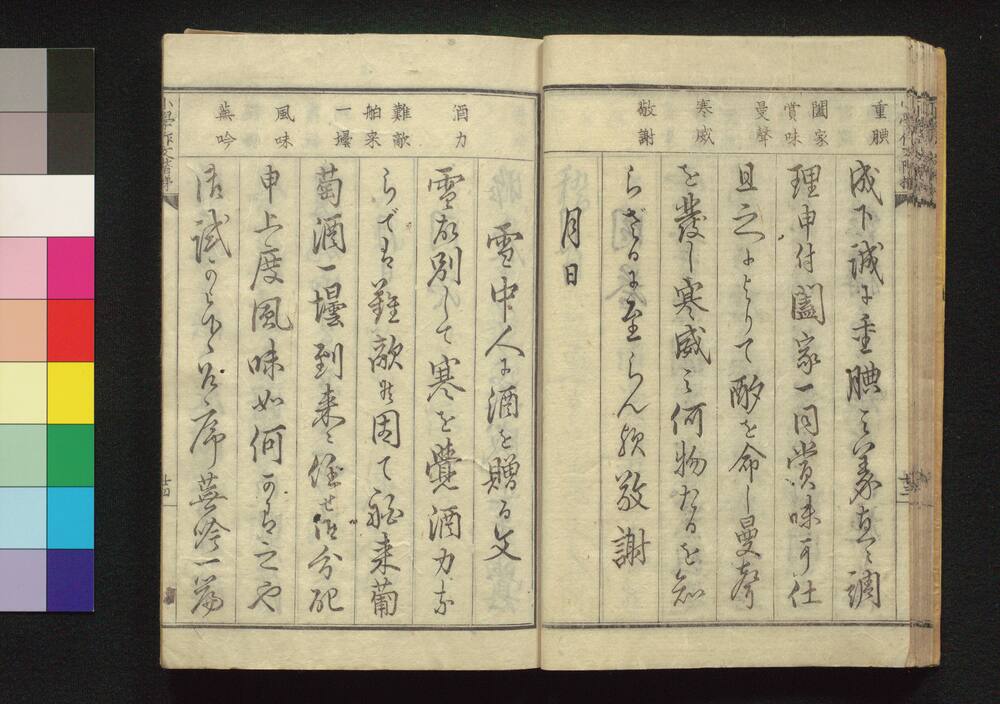 重腆
闔家
賞味
曼聲
寒威
敬謝
成下誠に重腆之至直ニ調
理申付闔家一同賞味可仕
且之によりて酌を命し曼聲
を發し寒威之何物たるを知
らざるに至らん歟敬謝
月日
酒力
難敵
舶来
一壜
風味
蕪吟
雪中人に酒を贈る文
雪故別して寒を覺酒力な
らでは難敵候因て舶来葡
萄酒一壜到来ニ任せ作分配
申上度風味如何可有之や
御試可被下候序蕪吟一篇
廿四